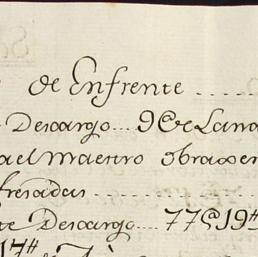 de Enfrente ....
Descargo... 9@ de Lana
al Maestro obraxen
fresadas ........
te Descargo.... 77@19
17